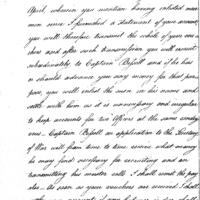 April, wherein you mention having enlisted
men since I furnished a statement of your account
you will therefore transmit the whole of your
and after such transmission you will
subordinately to Captain Bissell and if he has
should advance you any money for that pur-
pose, you will enlist the men in his name and
settle with him as it is unnecessary and irregular
to keep accounts for two Officers at the same rendez-
vous. Captain Bissell on application to the Secretary
of War will from time to time receive what money
he may find necessary for recruiting and on
transmitting his muster rolls I shall send the pay
also. As soon as your vouchers are received I shall